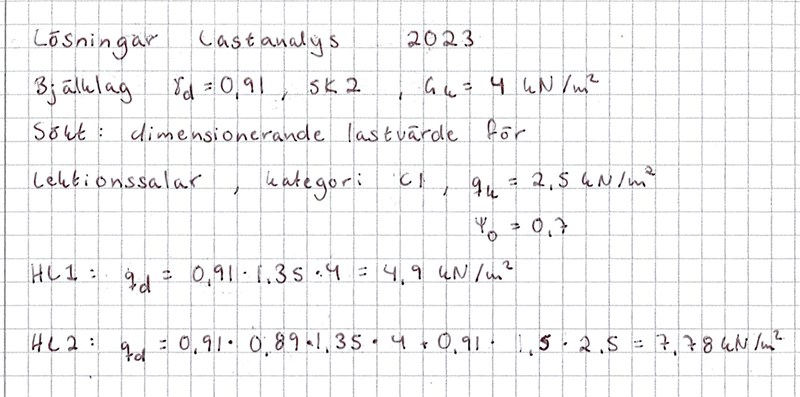 Lösningar Lastanalys 2023
Bjälklag γd = 0,91 , SK2 , Gk = 4 kN/m²
Sökt: dimensionerande lastvärde för
Lektionssalar , kategori C1 , qk = 2,5 kN/m²
Ψ0 = 0,7
HL1: qd = 0,91 · 1,35 · 4 = 4,9 kN/m²
HL2: qd = 0,91 · 0,89 · 1,35 · 4 + 0,91 · 1,5 · 2,5 = 7,78 kN/m²